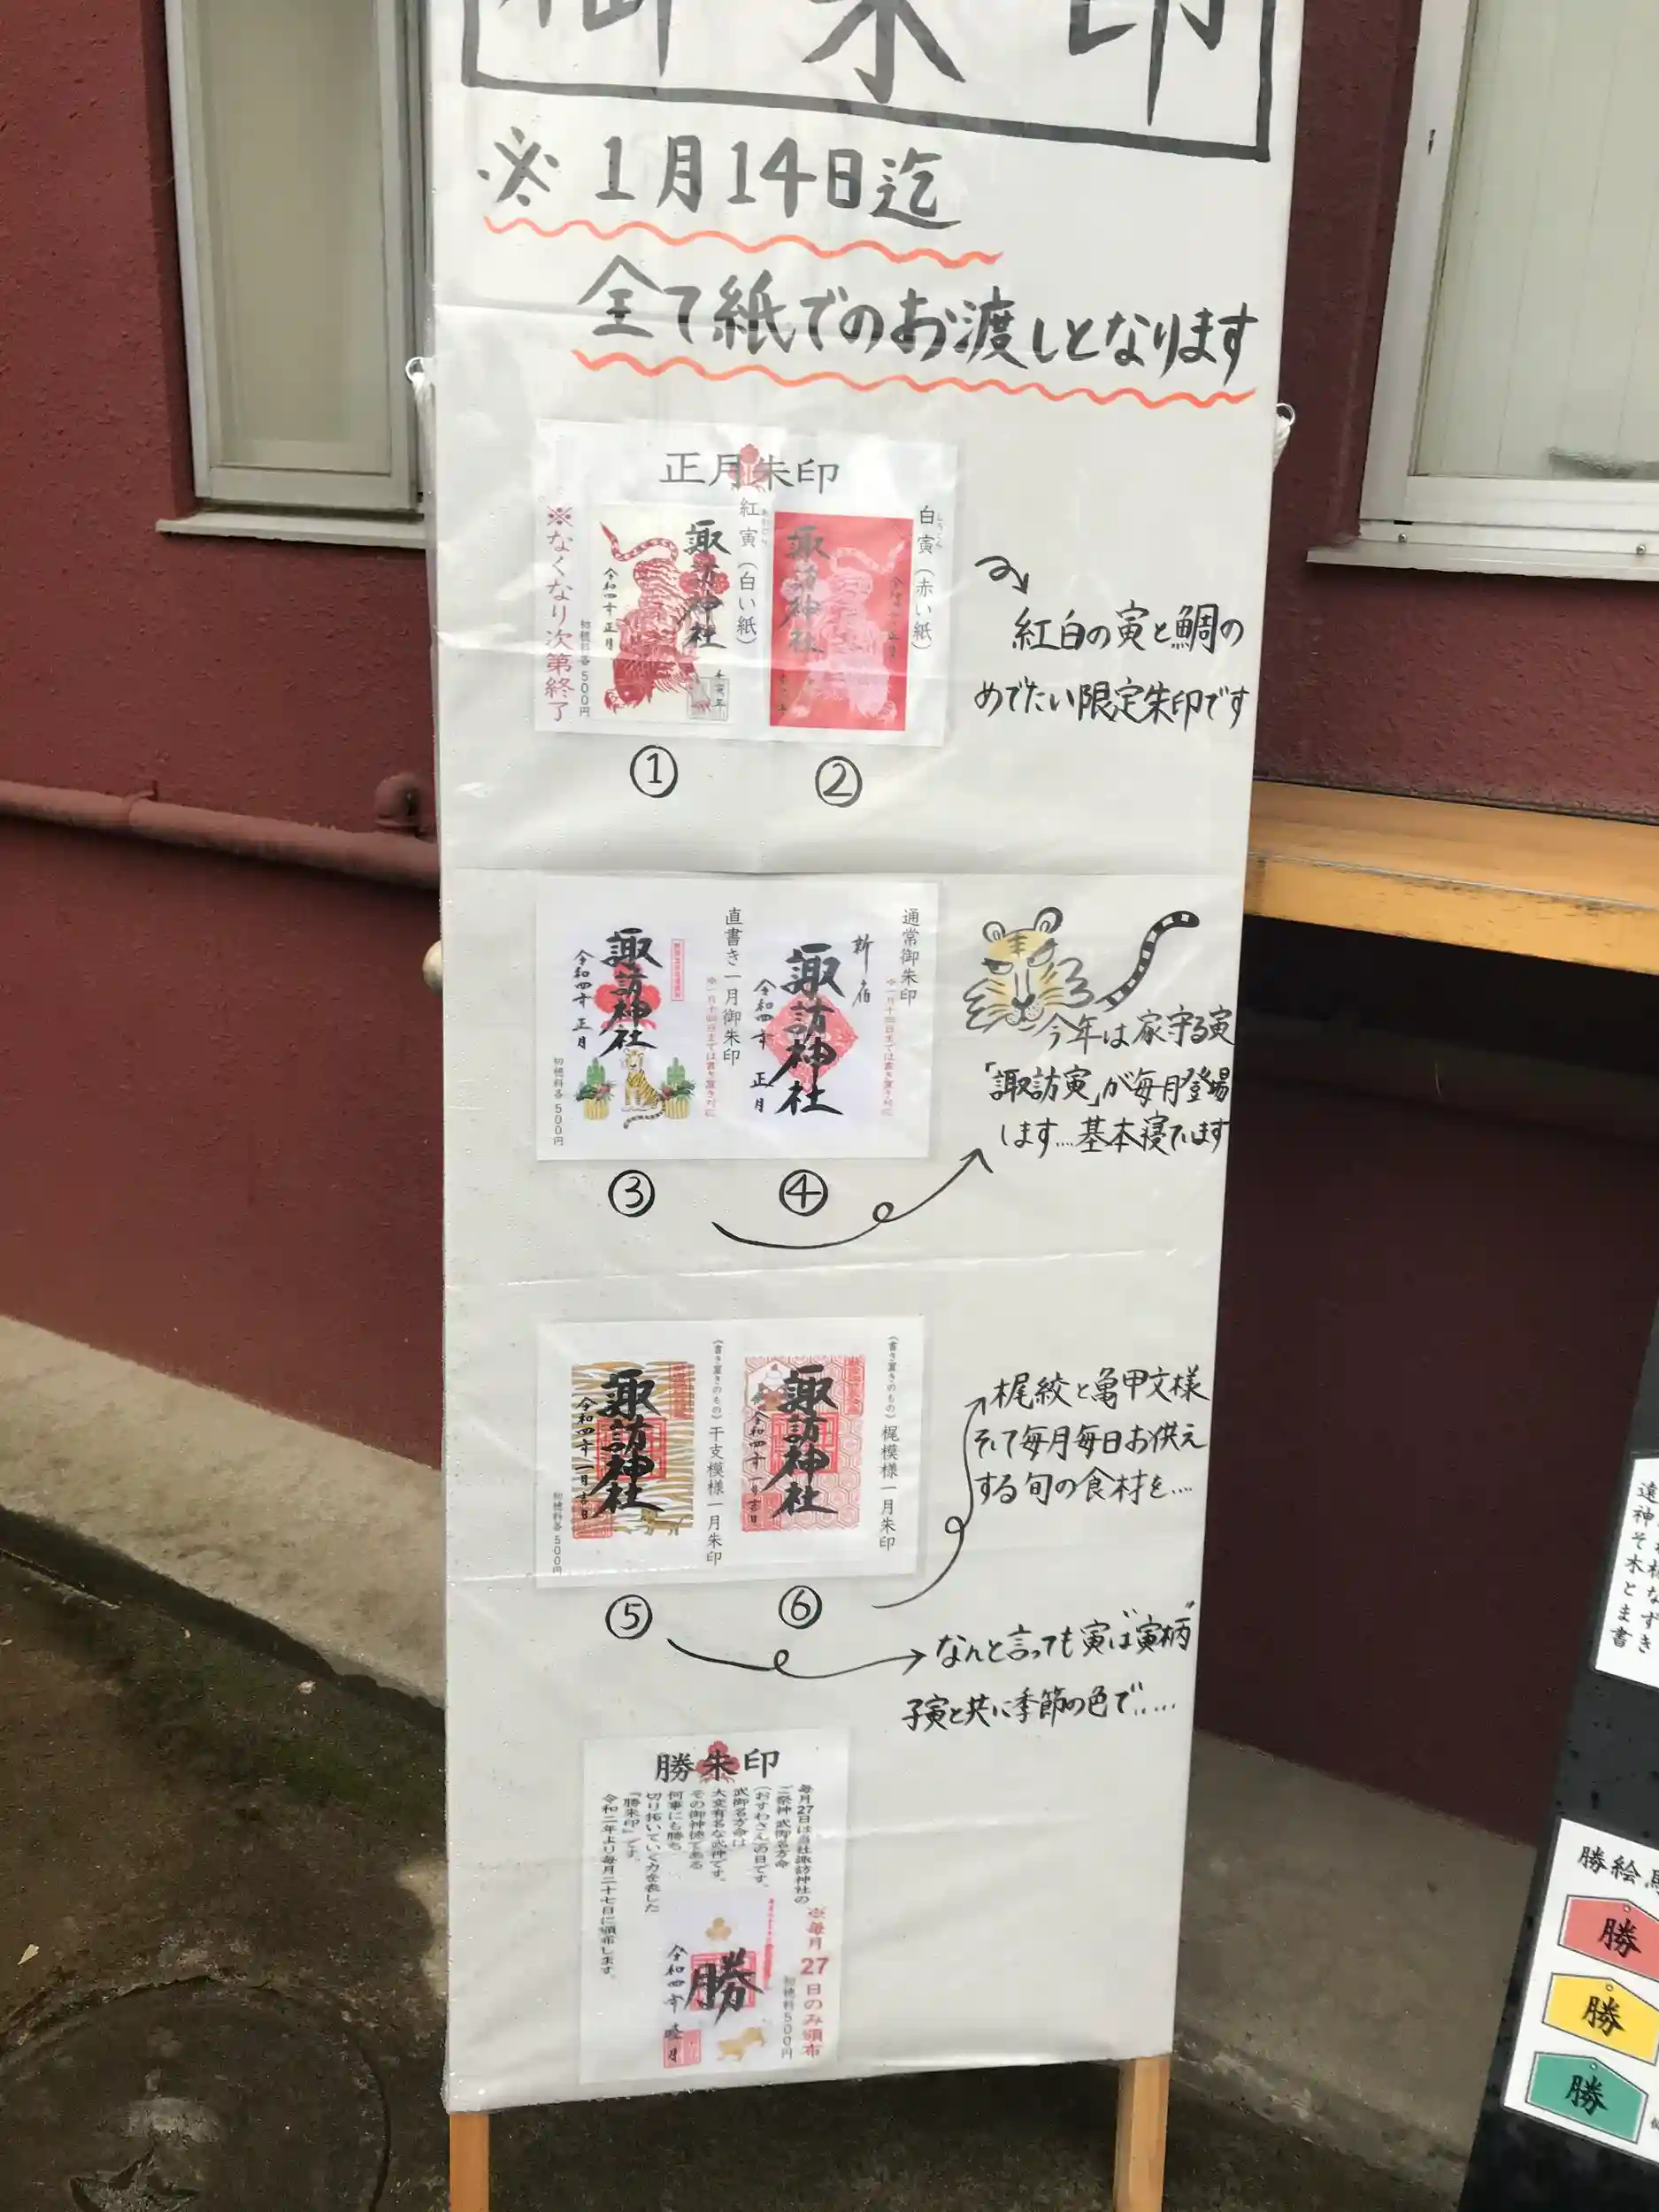 御朱印
※1月14日迄
全て紙でのお渡しとなります
正月朱印
白寅(赤い紙)
紅寅(白い紙)
諏訪神社
令和四年正月
壬寅年
諏訪神社
初穂料各500円
※なくなり次第終了
紅白の寅と鯛の
めでたい限定朱印です
①
②
通常御朱印
※一月十四日までは書き置き対応
新宿
諏訪神社
令和四年
正月
直書き一月御朱印
※一月十四日までは書き置き対応
諏訪神社
令和四年正月
初穂料各500円
今年は家守る寅
「諏訪寅」が毎月登場
します....基本寝ています
③
④
《書き置きのもの》梶模様一月朱印
諏訪神社
令和四年一月吉日
《書き置きのもの》干支模様一月朱印
諏訪神社
令和四年一月吉日
初穂料各500円
梶紋と亀甲文様
そして毎月毎日お供え
する旬の食材を....
⑤
⑥
なんと言っても寅は“寅柄”
子寅と共に季節の色で.....
勝朱印
毎月27日は当社諏訪神社の
ご祭神 武御名方命
(おすわさん)の日です。
武御名方命は
大変有名な武神です。
その御神徳である
何事にも勝ち
切り拓いていく力を表した
『勝朱印』です。
令和二年より毎月二十七日に頒布します。
※毎月27日のみ頒布
初穂料500円
勝
令和四年
睦月
勝絵馬
勝
勝
勝